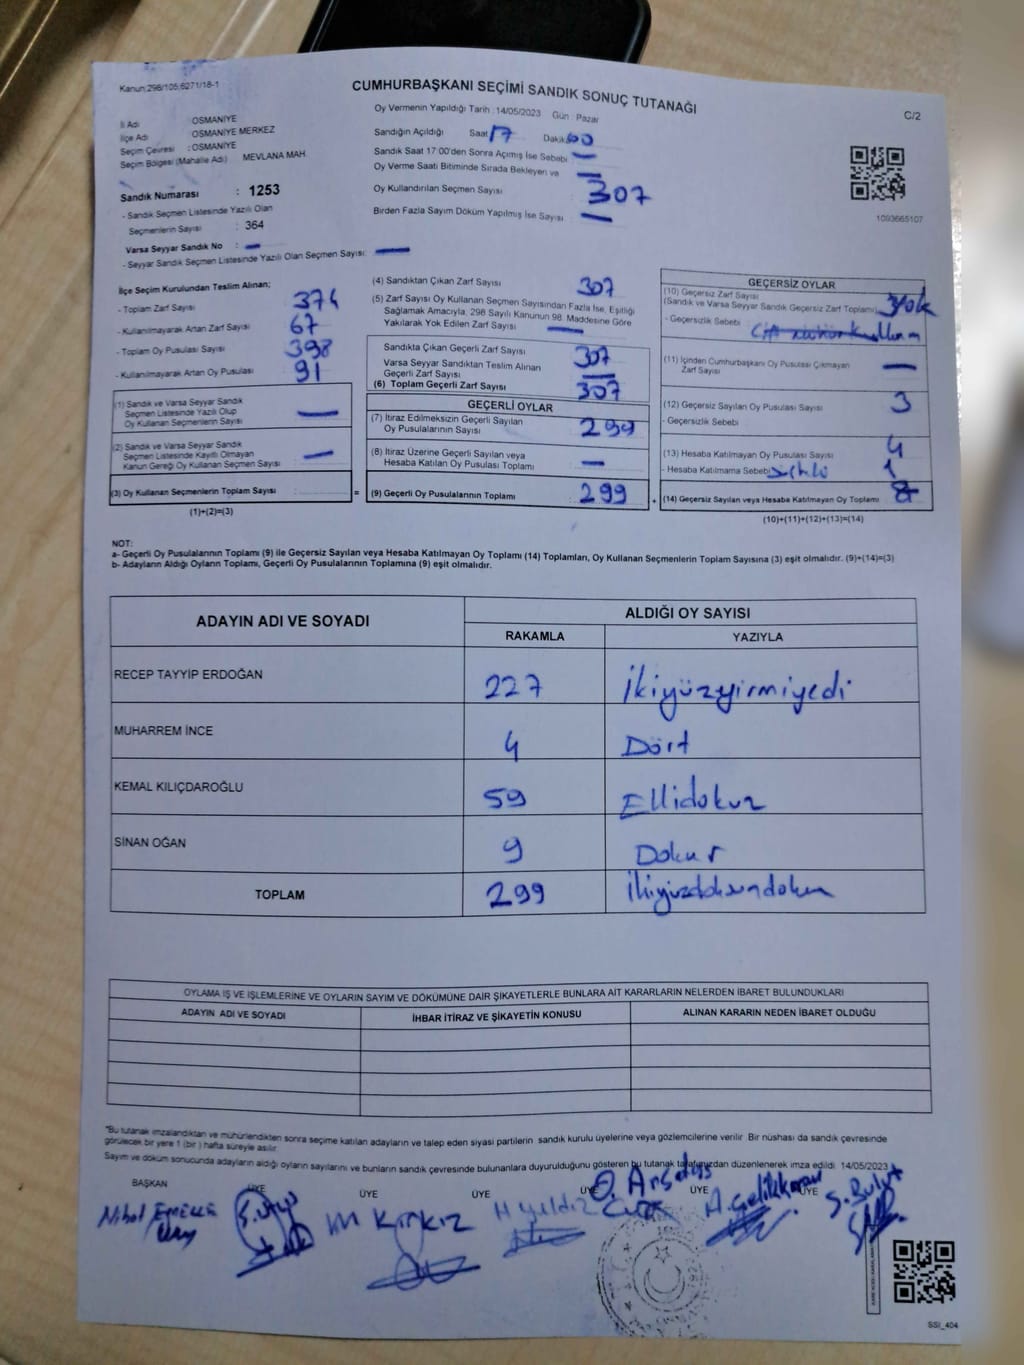 Kanun:298/105;6271/18-1
CUMHURBAŞKANI SEÇİMİ SANDIK SONUÇ TUTANAĞI
C/2
İl Adı OSMANİYE
İlçe Adı OSMANİYE MERKEZ
Seçim Çevresi : OSMANİYE
Seçim Bölgesi (Mahalle Adı) MEVLANA MAH.
Sandık Numarası : 1253
- Sandık Seçmen Listesinde Yazılı Olan
Seçmenlerin Sayısı : 364
Varsa Seyyar Sandık No : —
- Seyyar Sandık Seçmen Listesinde Yazılı Olan Seçmen Sayısı: —
Oy Vermenin Yapıldığı Tarih : 14/05/2023 Gün : Pazar
Sandığın Açıldığı Saat 17 Dakika 00
Sandık Saat 17:00'den Sonra Açılmış İse Sebebi —
Oy Verme Saati Bitiminde Sırada Bekleyen ve —
Oy Kullandırılan Seçmen Sayısı 307
Birden Fazla Sayım Döküm Yapılmış İse Sayısı —
1093665107
İlçe Seçim Kurulundan Teslim Alınan;
- Toplam Zarf Sayısı 374
- Kullanılmayarak Artan Zarf Sayısı 67
- Toplam Oy Pusulası Sayısı 398
- Kullanılmayarak Artan Oy Pusulası 91
(1) Sandık ve Varsa Seyyar Sandık
Seçmen Listesinde Yazılı Olup
Oy Kullanan Seçmenlerin Sayısı —
(2) Sandık ve Varsa Seyyar Sandık
Seçmen Listesinde Kayıtlı Olmayan
Kanun Gereği Oy Kullanan Seçmen Sayısı —
(3) Oy Kullanan Seçmenlerin Toplam Sayısı =
(1)+(2)=(3)
(4) Sandıktan Çıkan Zarf Sayısı 307
(5) Zarf Sayısı Oy Kullanan Seçmen Sayısından Fazla İse, Eşitliği
Sağlamak Amacıyla, 298 Sayılı Kanunun 98. Maddesine Göre
Yakılarak Yok Edilen Zarf Sayısı —
Sandıkta Çıkan Geçerli Zarf Sayısı 307
Varsa Seyyar Sandıktan Teslim Alınan
Geçerli Zarf Sayısı —
(6) Toplam Geçerli Zarf Sayısı 307
GEÇERLİ OYLAR
(7) İtiraz Edilmeksizin Geçerli Sayılan
Oy Pusulalarının Sayısı 299
(8) İtiraz Üzerine Geçerli Sayılan veya
Hesaba Katılan Oy Pusulası Toplamı —
(9) Geçerli Oy Pusulalarının Toplamı : 299 +
GEÇERSİZ OYLAR
(10) Geçersiz Zarf Sayısı
(Sandık ve Varsa Seyyar Sandık Geçersiz Zarf Toplamı) yok
- Geçersizlik Sebebi
(11) İçinden Cumhurbaşkanı Oy Pusulası Çıkmayan
Zarf Sayısı —
(12) Geçersiz Sayılan Oy Pusulası Sayısı 3
- Geçersizlik Sebebi
(13) Hesaba Katılmayan Oy Pusulası Sayısı 4
- Hesaba Katılmama Sebebi 1
(14) Geçersiz Sayılan veya Hesaba Katılmayan Oy Toplamı 8
(10)+(11)+(12)+(13)=(14)
NOT:
a- Geçerli Oy Pusulalarının Toplamı (9) ile Geçersiz Sayılan veya Hesaba Katılmayan Oy Toplamı (14) Toplamları, Oy Kullanan Seçmenlerin Toplam Sayısına (3) eşit olmalıdır. (9)+(14)=(3)
b- Adayların Aldığı Oyların Toplamı, Geçerli Oy Pusulalarının Toplamına (9) eşit olmalıdır.
ADAYIN ADI VE SOYADI ALDIĞI OY SAYISI
RAKAMLA YAZIYLA
RECEP TAYYİP ERDOĞAN 227 İkiyüzyirmiyedi
MUHARREM İNCE 4 Dört
KEMAL KILIÇDAROĞLU 59 Ellidokuz
SİNAN OĞAN 9 Dokuz
TOPLAM 299 İkiyüzdoksandokuz
OYLAMA İŞ VE İŞLEMLERİNE VE OYLARIN SAYIM VE DÖKÜMÜNE DAİR ŞİKAYETLERLE BUNLARA AİT KARARLARIN NELERDEN İBARET BULUNDUKLARI
ADAYIN ADI VE SOYADI İHBAR İTİRAZ VE ŞİKAYETİN KONUSU ALINAN KARARIN NEDEN İBARET OLDUĞU
"Bu tutanak imzalandıktan ve mühürlendikten sonra seçime katılan adayların ve talep eden siyasi partilerin sandık kurulu üyelerine veya gözlemcilerine verilir. Bir nüshası da sandık çevresinde
görülecek bir yere 1 (bir) hafta süreyle asılır.
Sayım ve döküm sonucunda adayların aldığı oyların sayılarını ve bunların sandık çevresinde bulunanlara duyurulduğunu gösteren bu tutanak tarafımızdan düzenlenerek imza edildi. 14/05/2023
BAŞKAN ÜYE ÜYE ÜYE ÜYE ÜYE ÜYE
M Kırkız H Yıldız A. Çelikkıran S. Bulut
SSI_404